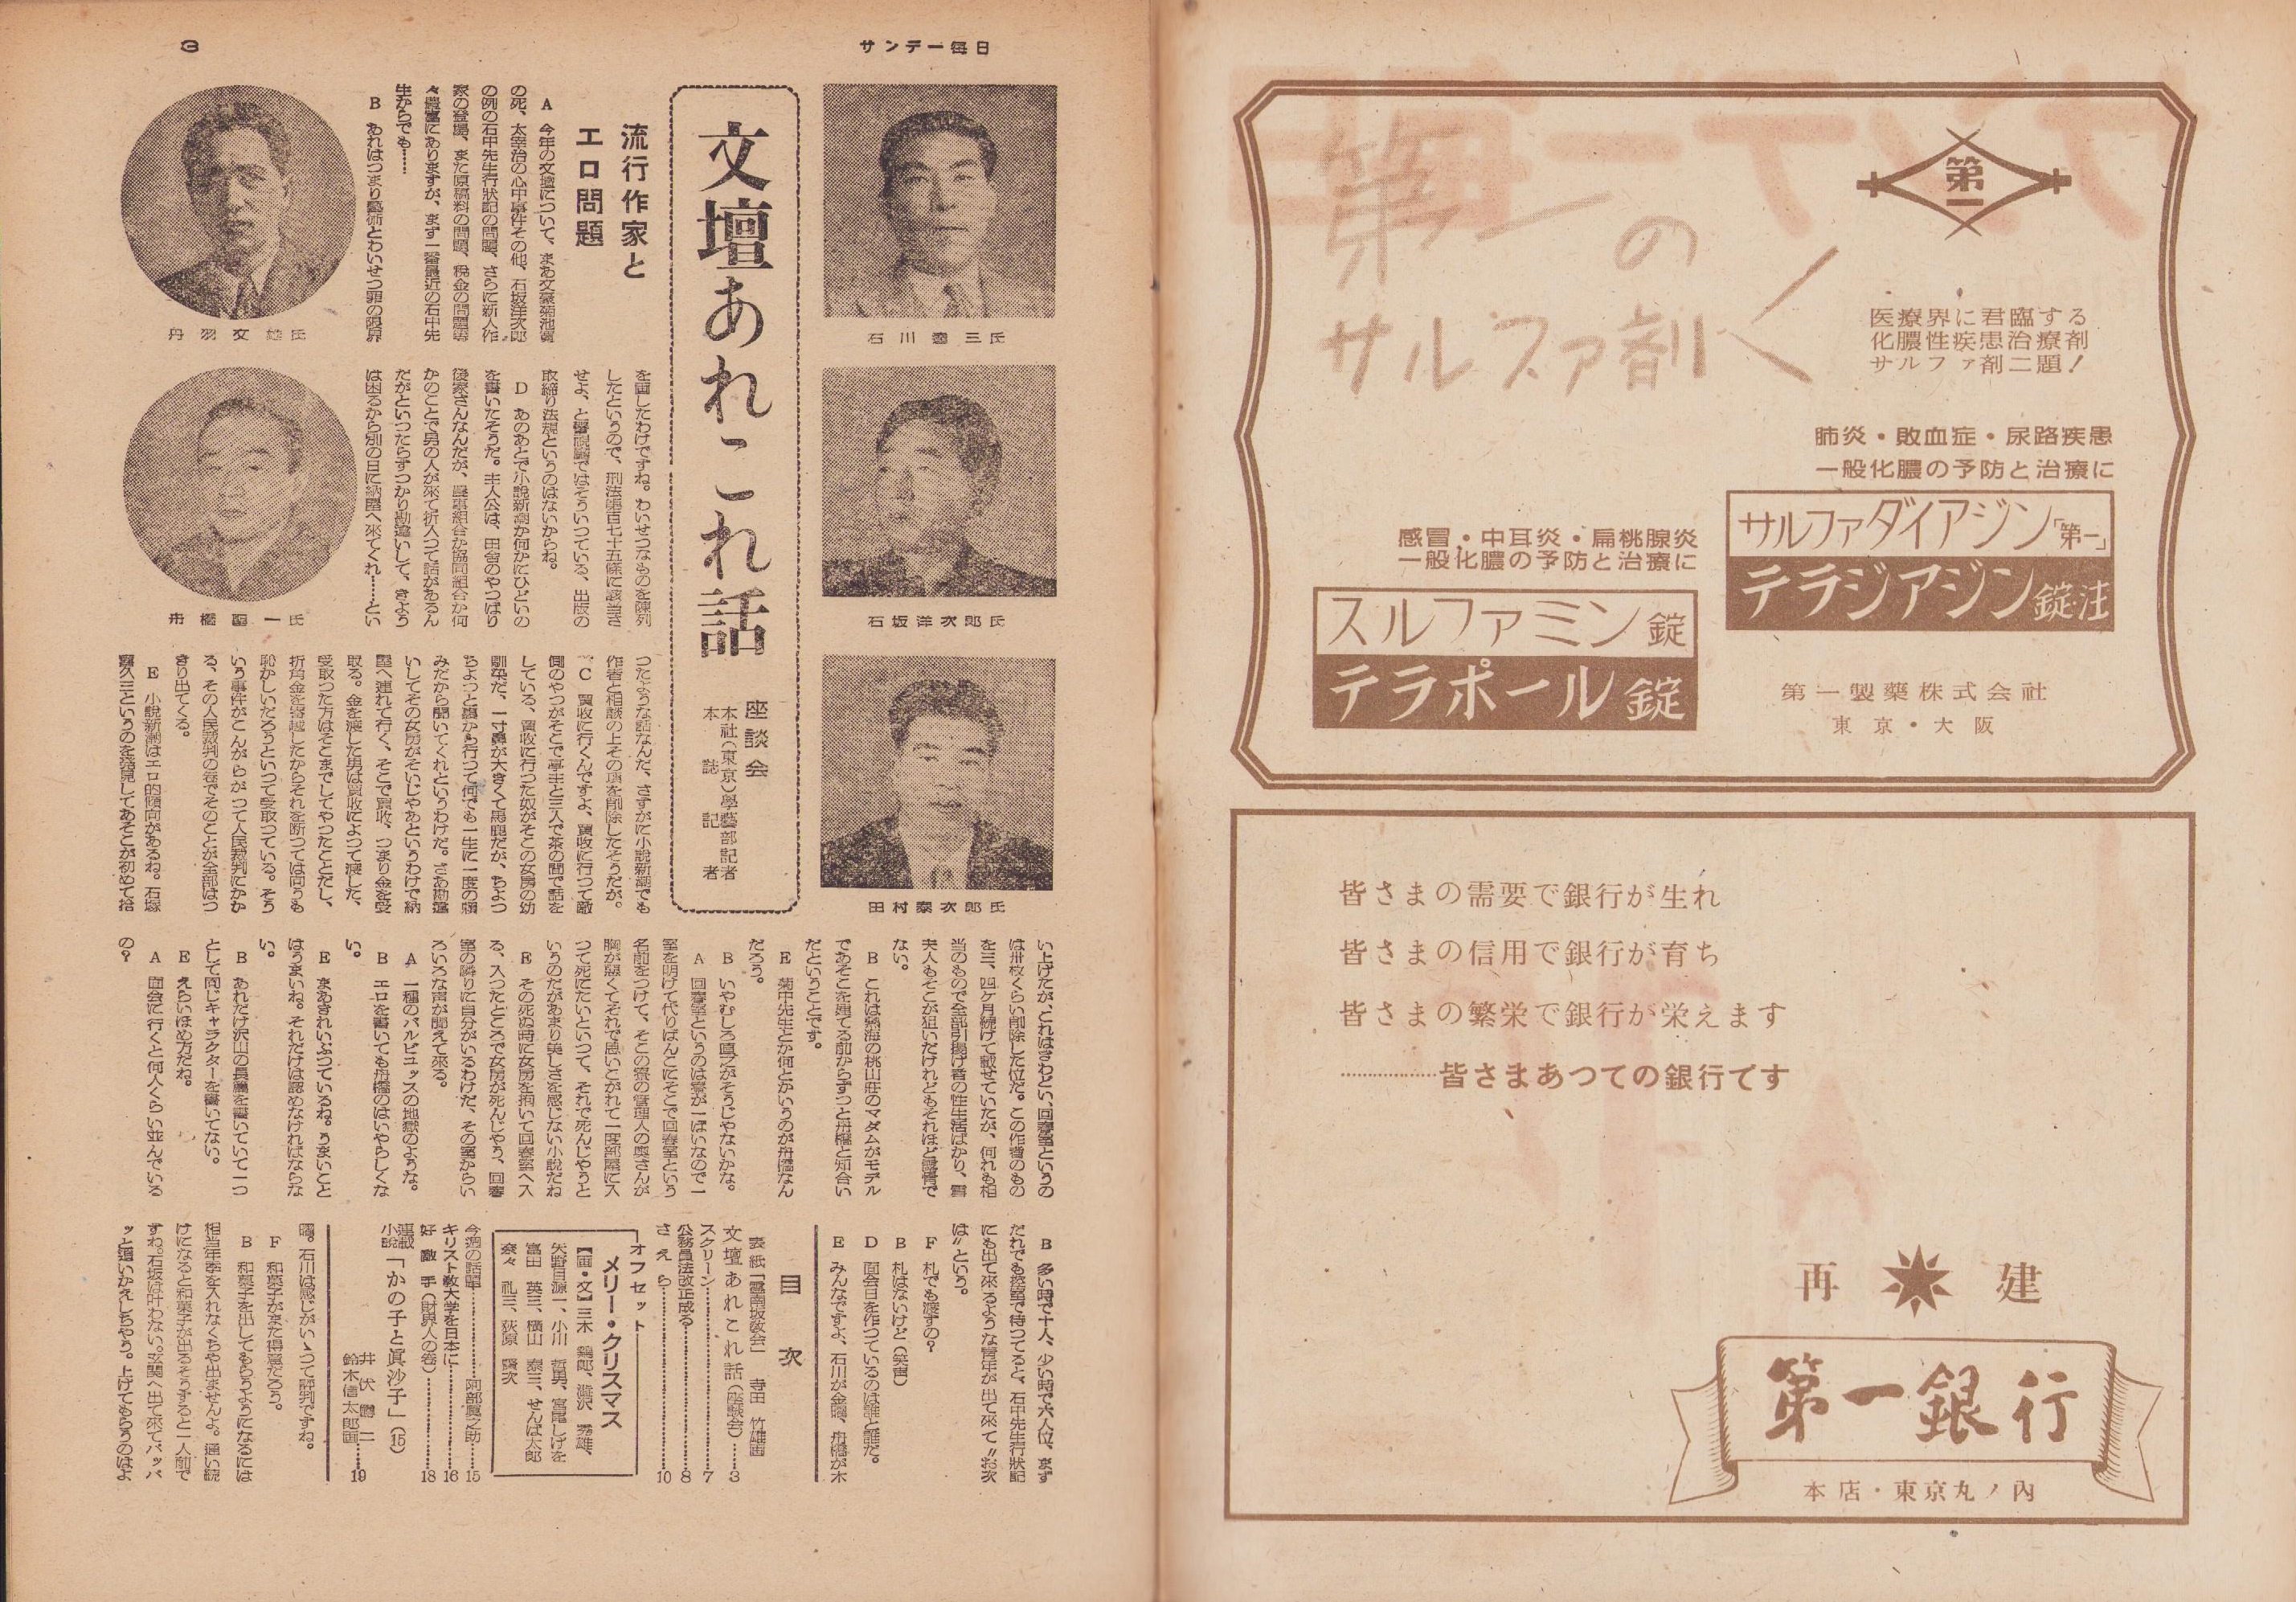 第一
第一の
サルファ剤
医療界に君臨する
化膿性疾患治療剤
サルファ剤二題!
肺炎・敗血症・尿路疾患
一般化膿の予防と治療に
サルファダイアジン「第一」
テラジアジン錠・注
感冒・中耳炎・扁桃腺炎
一般化膿の予防と治療に
スルファミン錠
テラポール錠
第一製薬株式会社
東京・大阪
皆さまの需要で銀行が生れ
皆さまの信用で銀行が育ち
皆さまの繁栄で銀行が栄えます
…………皆さまあつての銀行です
再建
第一銀行
本店・東京丸ノ内
サンデー毎日
3
石川達三氏
石坂洋次郎氏
田村泰次郎氏
文壇あれこれ話
座談会
本社(東京)學藝部記者
本誌記者
流行作家と
エロ問題
丹羽文雄氏
舟橋聖一氏
A 今年の文壇について、まあ文豪菊池寛
の死、太宰治の心中事件その他、石坂洋次郎
の例の石中先生行狀記の問題、さらに新人作
家の登場、また原稿料の問題、税金の問題等
々豊富にありますが、まず一番最近の石中先
生からでも……
B あれはつまり藝術とわいせつ罪の限界
を画したわけですね。わいせつなものを陳列
したというので、刑法第百七十五條に該当さ
せよ、と警視廳ではそういつている、出版の
取締り法規というのはないからね。
D あのあとで小説新潮か何かにひどいの
を書いたそうだ。主人公は、田舎のやつぱり
後家さんなんだが、農事組合か協同組合か何
かのことで男の人が來て折入つて話があるん
だがといつたらずつかり勘違いして、きよう
は困るから別の日に納屋へ來てくれ……とい
つたような話なんだ、さすがに小説新潮でも
作者と相談の上その項を削除したそうだが。
C 買收に行くんですよ、買收に行つて敵
側のやつがそこで亭主と三人で茶の間で話を
している、買收に行つた奴がそこの女房の幼
馴染だ、一寸鼻が大きくて馬鹿だが、ちよつ
ちよつと裏から行つて何でも一生に一度の頼
みだから聞いてくれというわけだ。さあ勘違
いしてその女房がそいじやあというわけで納
屋へ連れて行く、そこで買收、つまり金を受
取る。金を渡した男は買收によつて渡した、
受取つた方はそこまでしてやつたことだし、
折角金を寄越したからそれを断つては向うも
恥かしいだろうといつて受取つている。そう
いう事件がこんがらがつて人民裁判にかか
る、その人民裁判の巻でそのことが全部はつ
きり出てくる。
E 小説新潮はエロ的傾向があるね。石塚
喜久三というのを発見してあそこが初めて拾
い上げたがこれはきわどい、回春室というの
は卅枚くらい削除した位だ。この作者のもの
を三、四ヶ月続けて載せていたが、何れも相
当のもので全部引揚げ者の性生活ばかり、
夫人もそこが狙いだけれどもそれほど露骨で
ない。
B これは熱海の桃山荘のマダムがモデル
であそこを建てる前からずつと舟橋と知合い
だということです。
E 菊中先生とか何とかいうのが舟橋なん
だろう。
B いやむしろ直之がそうじやないかな。
A 回春室というのは寮が一ぱいなので一
室を明けて代りばんこにそこで回春室という
名前をつけて、そこの寮の管理人の奥さんが
胸が悪くてそれで思いこがれて一度部屋に入
つて死にたいといつて、それで死んじやうと
いうのだがあまり美しさを感じない小説だね
E その死ぬ時に女房を抱いて回春室へ入
る、入つたところで女房が死んじやう、回春
室の隣りに自分がいるわけだ、その室からい
ろいろな声が聞えて來る。
A 一種のバルビュッスの地獄のような。
B エロを書いても舟橋のはいやらしくな
い。
E まあきれいぶつているね。うまいこと
はうまいね。それだけは認めなければならな
い。
B あれだけ沢山の長篇を書いていて一つ
として同じキャラクターを書いてない。
E えらいほめ方だね。
A 面会に行くと何人くらい並んでいる
の?
B 多い時で十人、少い時で六人位、まず
だれでも應接室で待つてると、石中先生行狀記
にも出て來るような青年が出て來て〝お次
は〟という。
F 札でも渡すの?
B 札はないけど(笑声)
D 面会日を作つているのは誰と誰だ。
E みんなですよ、石川が金曜、舟橋が木
曜。石川は感じがいゝつて評判ですね。
F 和菓子がまた得意だろう。
B 和菓子を出してもらうようになるには
相当年季を入れなくちや出ませんよ。通い続
けになると和菓子が出るそうすると一人前で
すね。石坂は叶わない。玄関へ出て來てバッバ
ッと追いかえしちやう。上げてもらうのはよ
目次
表紙「霊南坂敎会」 寺田竹雄画
文壇あれこれ話(座談会)……3
スクリーン……7
公務員法改正成る……8
さえら……10
オフセット
メリー・クリスマス
【画・文】三木鶏郎、瀧沢秀雄、
矢野目源一、小川哲男、宮尾しげを
富田英三、横山泰三、せんば太郎
奈々礼三、荻原賢次
今週の話題……阿部眞之助……15
キリスト敎大学を日本に……16
好敵手(財界人の巻)……18
連載小説「かの子と眞沙子」(15)
井伏鱒二
鈴木信太郎画……19